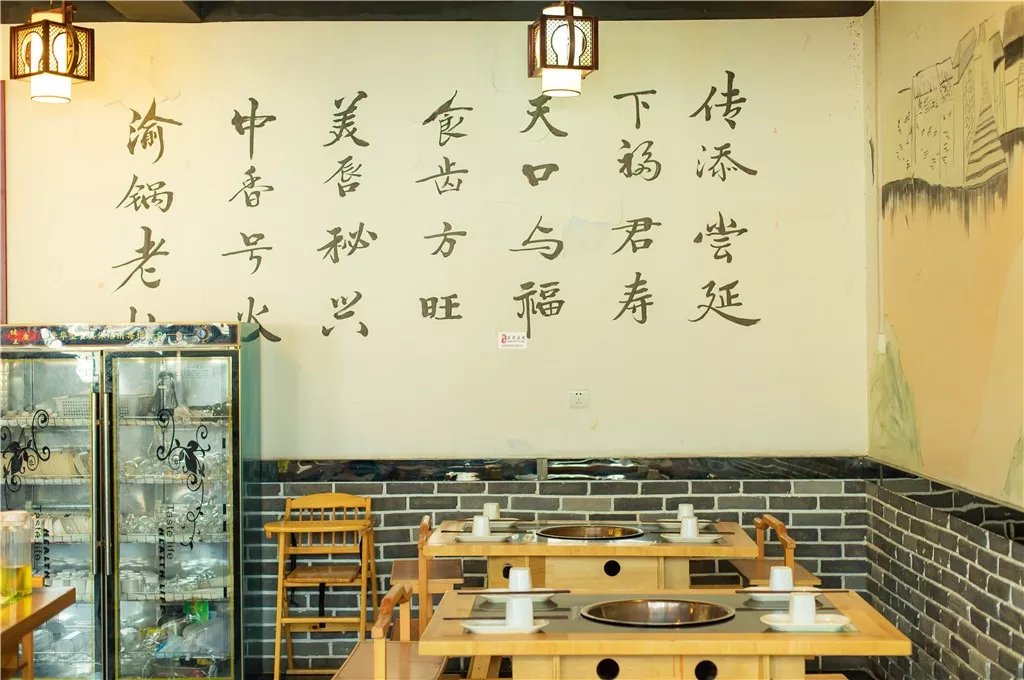 渝中美食天下传
锅香唇齿口福添
老号秘方与君尝
火兴旺福寿延
Taste life